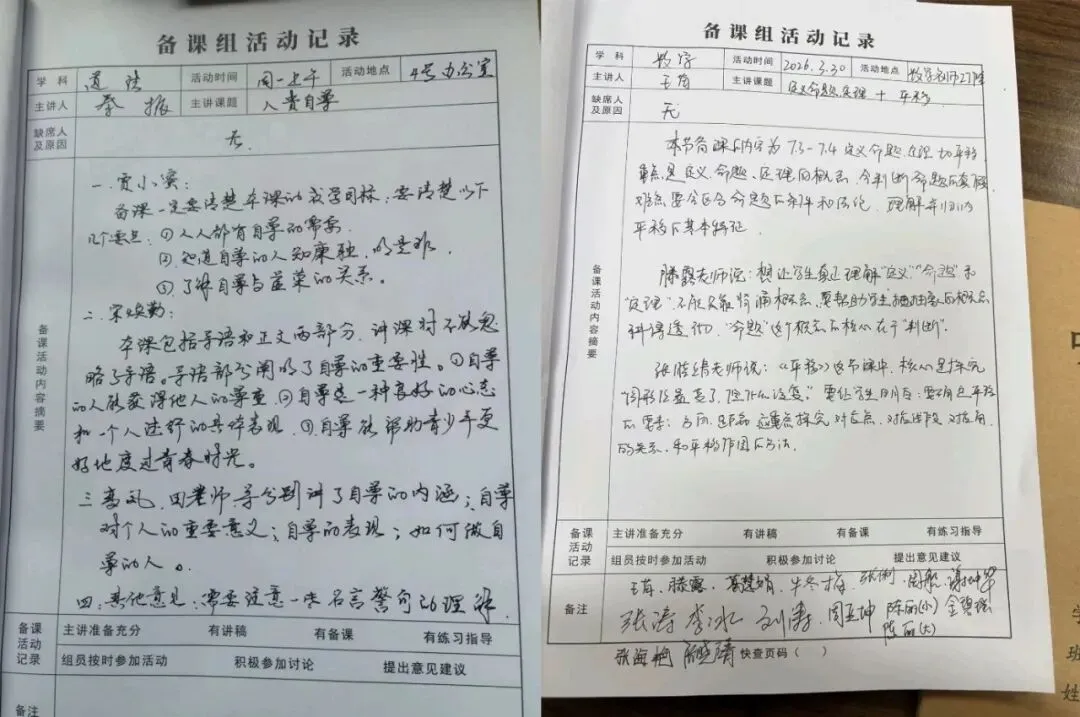 备课组活动记录
学科 道法 活动时间 周一上午 活动地点 4号办公室
主讲人 秦振 主讲课题 人贵自尊
缺席人及原因 无.
备课活动内容摘要
一.贾小蜜:
备课一定要清楚本课的教学目标,要清楚以下
几个要点:①人人都有自尊的需要.
②.知道自尊的人知廉耻,明是非.
③.了解自尊与虚荣的关系。
二.宋焕勤:
本课包括导语和正文两部分,讲课时不能忽
略了导语。导语部分阐明了自尊的重要性。①自尊
的人能获得他人的尊重.②自尊是一种良好的心态
和一个人良好的具体表现.③自尊能帮助青少年更
好地度过青春时光。
三.李凤、田老师、等分别讲了自尊的内涵;自尊
对个人的重要意义;自尊的表现;如何做自
尊的人。
四.其他意见:需要注意一些名言警句的理解.
备课活动记录
主讲准备充分 有讲稿 有备课 有练习指导
组员按时参加活动 积极参加讨论 提出意见建议
备注
备课组活动记录
学科 数学 活动时间 2026.3.30 活动地点
主讲人 主讲课题 定义命题定理 + 平移
缺席人及原因 无
备课活动内容摘要
本节备课内容为7.3-7.4定义命题.定理 和平移.
重点是定义、命题、定理的概念,会判断命题的真假
难点要分区分命题的条件和结论,理解并归纳
平移的基本特征.
滕露老师说:想让学生真正理解"定义""命题"和
"定理",不能只靠背诵概念,要帮助学生把抽象的概念
讲得透彻."命题"这个概念的核心在于"判断".
老师说:《平移》这节课中,核心是探究
"图形位置变了,但什么没变".要让学生明白:要确定平移
的要素:方向、距离.还重点探究对应点、对应线段、对应角
的关系,和平移作图的方法.
备课活动记录
主讲准备充分 有讲稿 有备课 有练习指导
组员按时参加活动 积极参加讨论 提出意见建议
备注
滕露. 牛冬梅
张涛 李冰 刘涛. 周亚坤 陈丽(小)
陈丽(大)
快查页码( )
学
班
姓